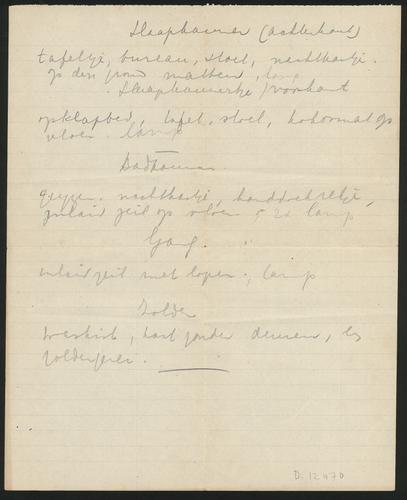 Slaapkamer (achterkant)
tafeltje, bureau, stoel, nachtkastje.
op den grond matten, lamp
Slaapkamertje voorkant
opklapbed, tafel, stoel, kokosmat op
vloer. lamp
Badkamer
geyser. nachtkastje, handdoekrekje,
inlaid zeil op vloer, lamp
Gang.
inlaid zeil met loper, lamp
Zolder
kast zonder deuren,
D. 12470